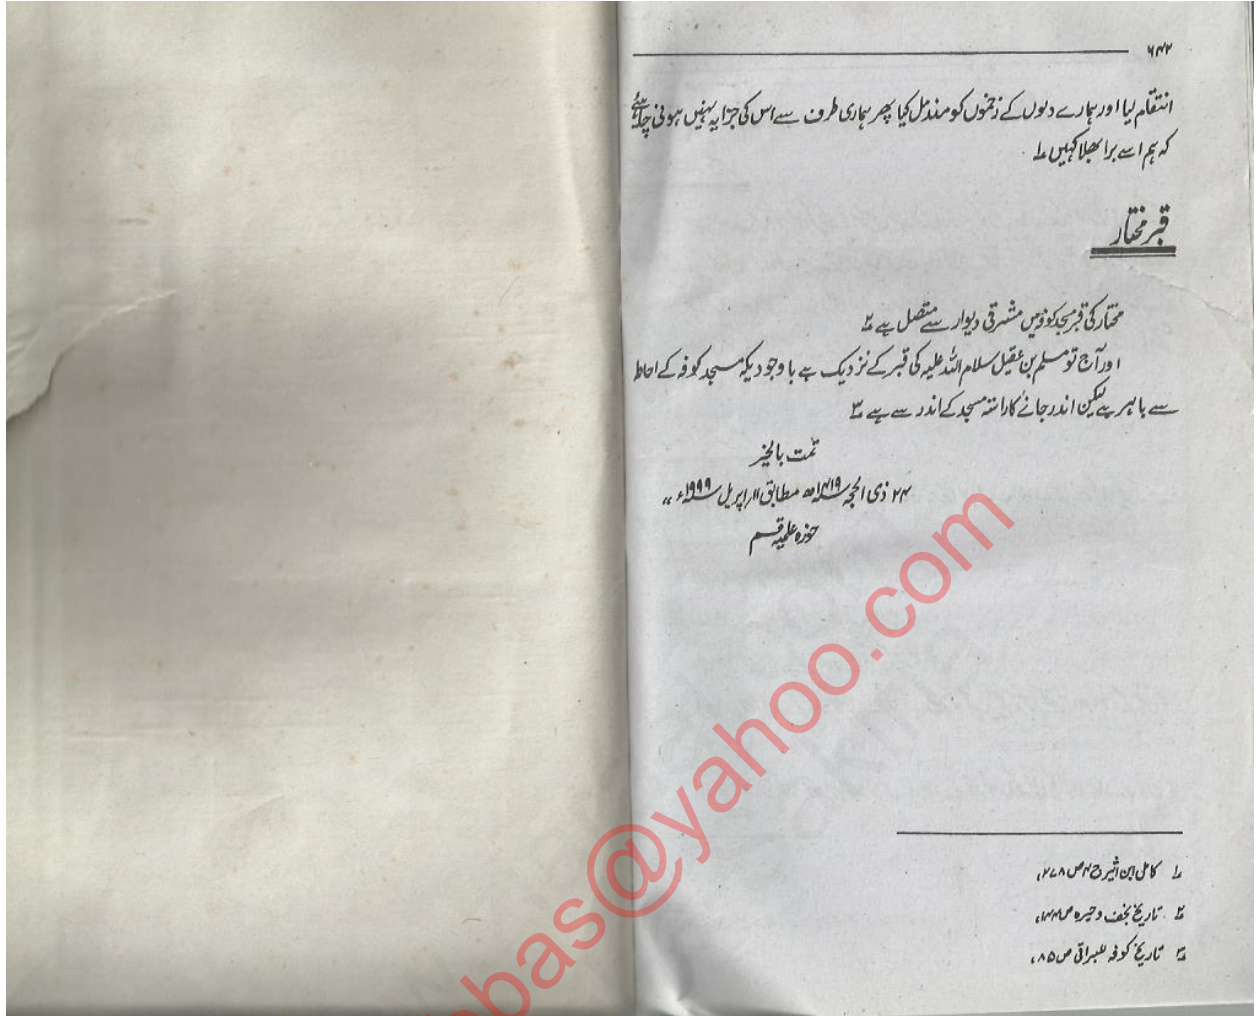 ۶۴۲
انتقام لیا اور ہمارے دلوں کے زخموں کو مندمل کیا پھر ہماری طرف سے اس کی جزا یہ نہیں ہونی چاہیئے
کہ ہم اسے برا بھلا کہیں ۱
قبر مختار
مختار کی قبر مسجد کوفہ میں مشرقی دیوار سے متصل ہے ۲
اور آج تو مسلم بن عقیل سلام اللہ علیہ کی قبر کے نزدیک ہے باوجودیکہ مسجد کوفہ کے احاطہ
سے باہر ہے لیکن اندر جانے کا راستہ مسجد کے اندر سے ہے ۳
تمت بالخیر
۲۴ ذی الحجہ ۱۴۱۹ھ مطابق ۱۱/ اپریل ۱۹۹۹ء
حوزہ علمیہ قم
۱ کامل ابن اثیر ج ۴ ص ۲۷۸،
۲ تاریخ نجف و حیرہ ص ۱۴۴،
۳ تاریخ کوفہ للبراقی ص ۸۵،
bas@yahoo.com